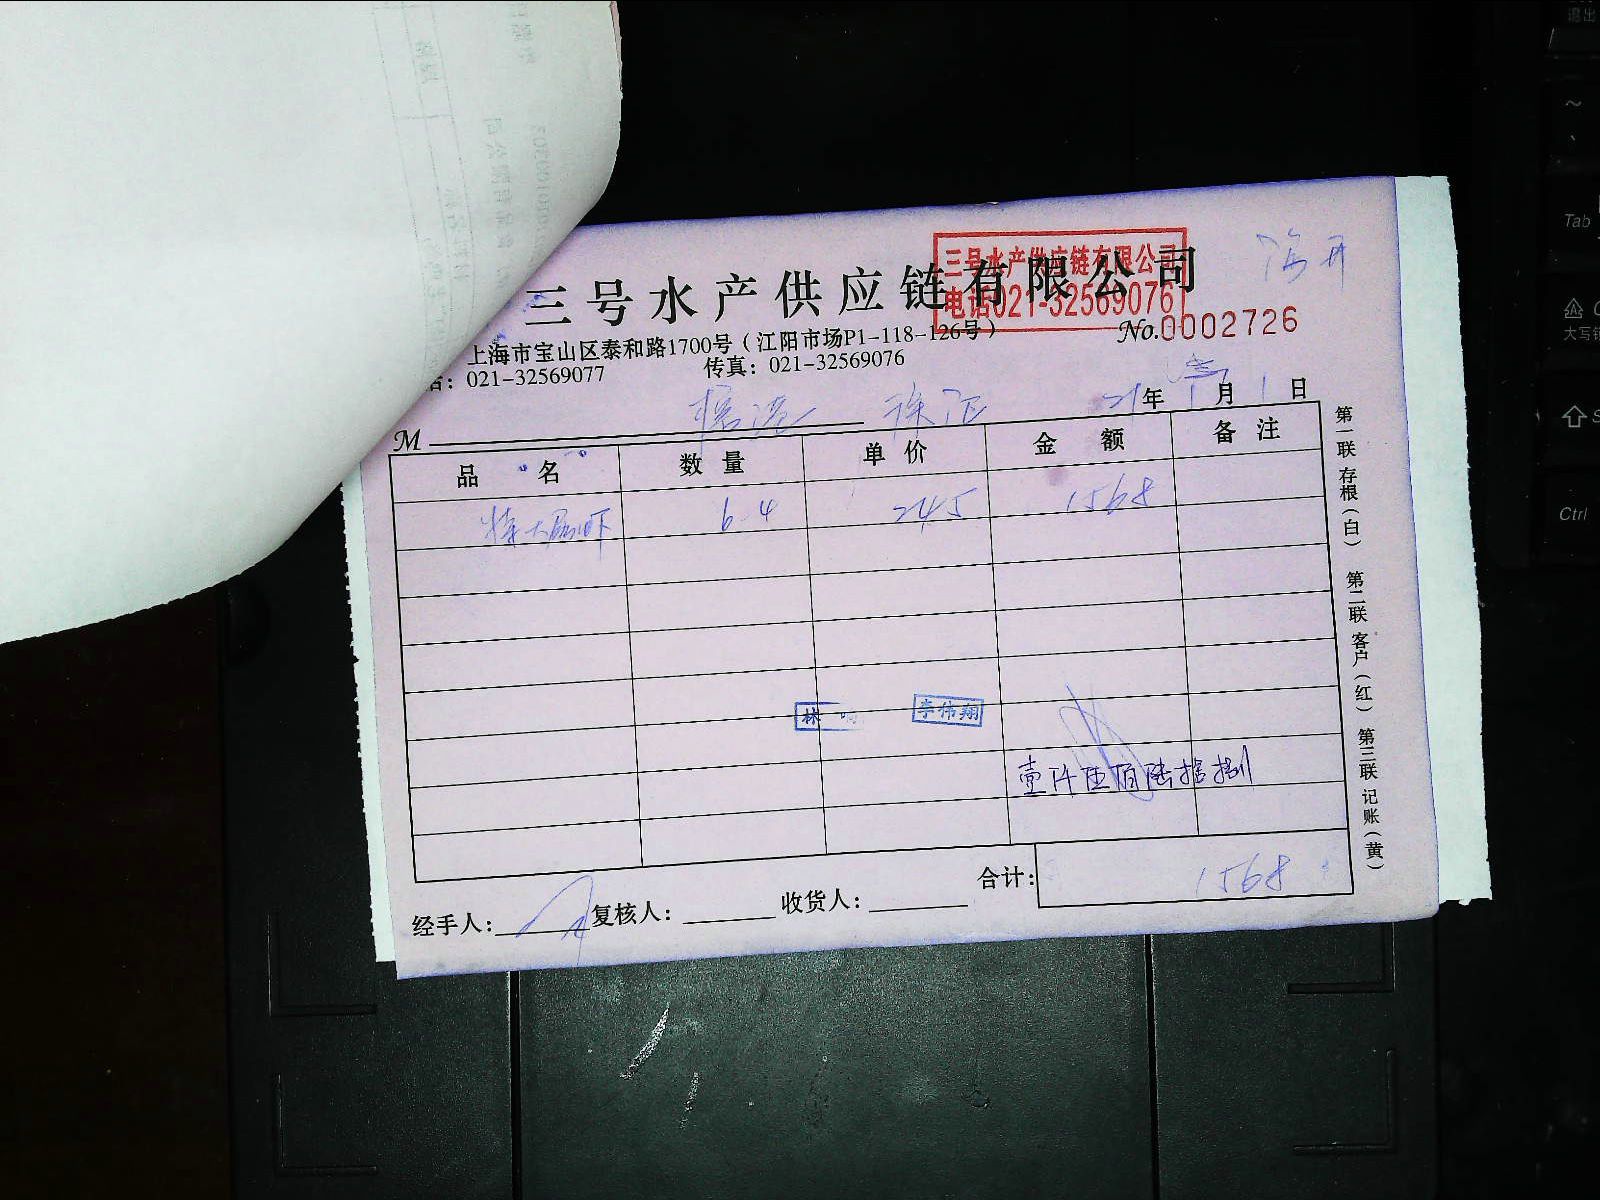 三号水产供应链有限公司
三号水产供应链有限公司
电话021-32569076
No.0002726
上海市宝山区泰和路1700号（江阳市场P1-118-126号）
话：021-32569077 传真：021-32569076
M 21年 1月 1日
品名 数量 单价 金额 备注
特大 虾 6.4 245 1568
李伟翔
壹仟伍佰陆拾捌
合计： 1568
经手人： 复核人： 收货人：
第一联 存根（白） 第二联 客户（红） 第三联 记账（黄）
退出
Tab
大写锁
Ctrl